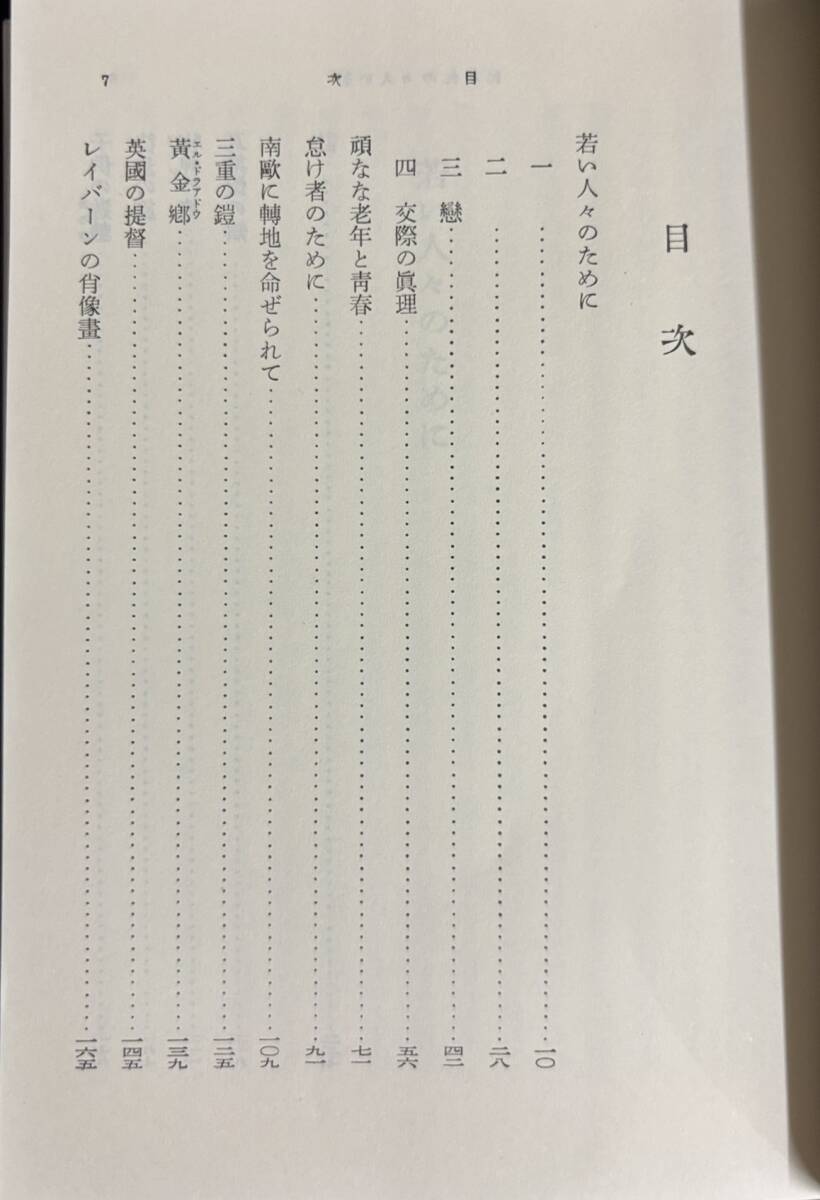 目次 7
目次
若い人々のために
一……一〇
二……二八
三 戀……四二
四 交際の眞理……五六
頑なな老年と靑春……七一
怠け者のために……九一
南歐に轉地を命ぜられて……一〇九
三重の鎧……一二五
黃金鄕……一三九
エル・ドラアドウ
英國の提督……一四五
レイバーンの肖像畫……一六五